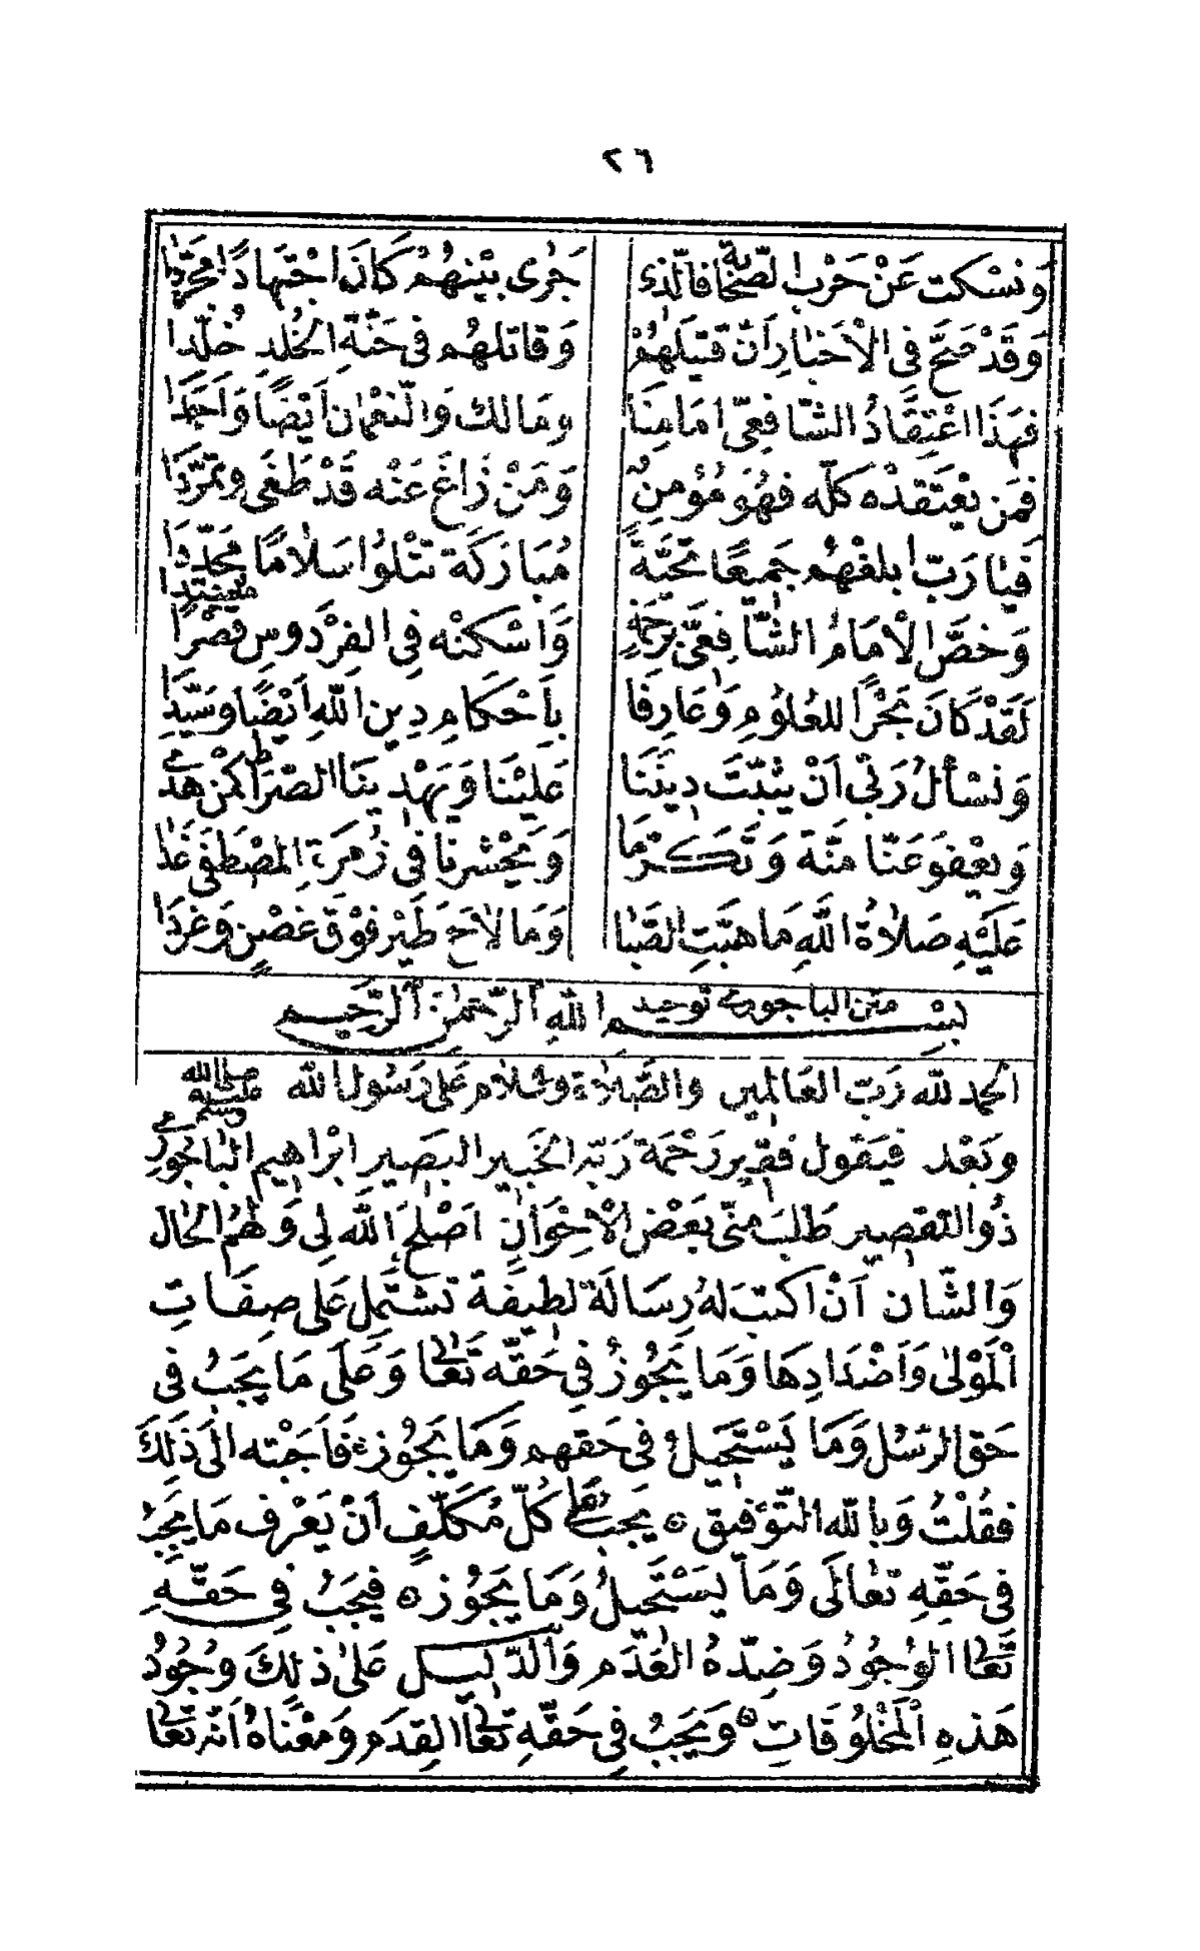 ٢٦
وَنَسْكُت عَنْ حَرْبِ الصَّحَابَة فَالَّذِي جَرٰى بَيْنَهُمْ كَانَ اجْتِهَادًا مُجَرَّدَا
وَقَدْ صَحَّ فِي الْاَخْبَارِ اَنَّ قَتِيلَهُمْ وَقَاتِلَهُم فِي جَنَّةِ الْخُلْدِ خُلِّدَا
فَهَذَا اعْتِقَادُ الشَّافِعِيِّ اِمَامِنَا وَمَالِكَ وَالنُّعْمَانِ اَيْضًا وَاَحْمَدَا
فَمَن يَعْتَقِدْهُ كُلَّه فَهُوَ مُؤْمِنٌ وَمَنْ زَاغَ عَنْه قَدْ طَغَى وَتَمَرَّدَا
فَيَا رَبِّ ابلغْهُم جَمِيعًا تَحِيَّةً مُبَارَكَة تَتْلُوا سَلَامًا مُجَدَّدَا
وَخَصَّ الْاِمَامُ الشَّافِعَيّ بِرَحْمَةٍ وَاَسْكِنْه فِي الفِرْدَوسِ قَصْرًا مُعَيَّنَدَا
لَقَدْ كَانَ بَحْرًا لِلعُلُومِ وَعَارِفَا بِاَحْكَامِ دِينِ اللهِ اَيْضًا وَسَيِّدَا
وَنَسْأَلُ رَبِّي اَنْ يُثَبِّتَ دِينَنَا عَلَيْنَا وَيَهْدِيْنَا الصِّرَاطَ كَمَنْ هَدٰى
وَيَعْفُو عَنَّا مِنَّة وَتَكَرُّمَا وَيَحْشُرنَا فِي زُمْرَةِ المُصْطَفَى غَدَا
عَلَيْهِ صَلَاةُ اللَّهِ مَا هَبَّتِ الصَّبَا وَمَا لَاحَ طَيْر فَوْقَ غُصْنٍ وَغَرَّدَا
متن الباجورى توحيد
بِسْمِ اللهِ الرَّحْمٰنِ الرَّحِيمِ
الحمد لله رَبِّ العَالَمِين وَالصَّلَاة وسَلَام عَلَى رَسُول الله صلى الله عليه وسلم
وَبَعْد فَيَقُول فَقِير رَحْمَة رَبِّه الخَبِير البَصِير اِبْرَاهِيم البَاجُورِي
ذُو التَقصِير طَلَبَ مِنِّي بَعْض الْاِخْوَانِ اَصْلَحَ اللَّه لِي وَلَهُمُ الْحَال
وَالشَّان اَنْ اَكتبَ لَهُ رِسَالَة لَطِيفَة تَشْتَمِل عَلَى صِفَاتِ
الْمَوْلٰى وَاَضْدَادِهَا وَمَا يَجُوزُ فِي حَقِّه تَعَالَى وَعَلَى مَا يَجِبُ فِى
حَقِّ الرُّسُل وَمَا يَسْتَحِيلُ فِي حَقِّهِم وَمَا يَجُوز فَاَجَبْته اِلَى ذَلِكَ
فَقُلْتُ وَبِاللهِ التَّوْفِيق ٥ يَجِبُ عَلَى كُلِّ مُكَلَّفٍ اَنْ يَعْرِف مَا يَجِبُ
فِي حَقِّهِ تَعَالَى وَمَا يَسْتَحِيلُ وَمَا يَجُوْز ٥ فَيَجِبُ فِي حَقِّهِ
تَعَالَى الوُجُودُ وَضِدّهُ العَدَم وَالدَّلِيل عَلٰى ذٰلِكَ وُجُودُ
هَذِهِ الْمَخْلُوقَاتِ ٥ وَيَجِبُ فِي حَقِّهِ تَعَالَى القِدَم وَمَعْنَاهُ اَنَّه تَعَالَى